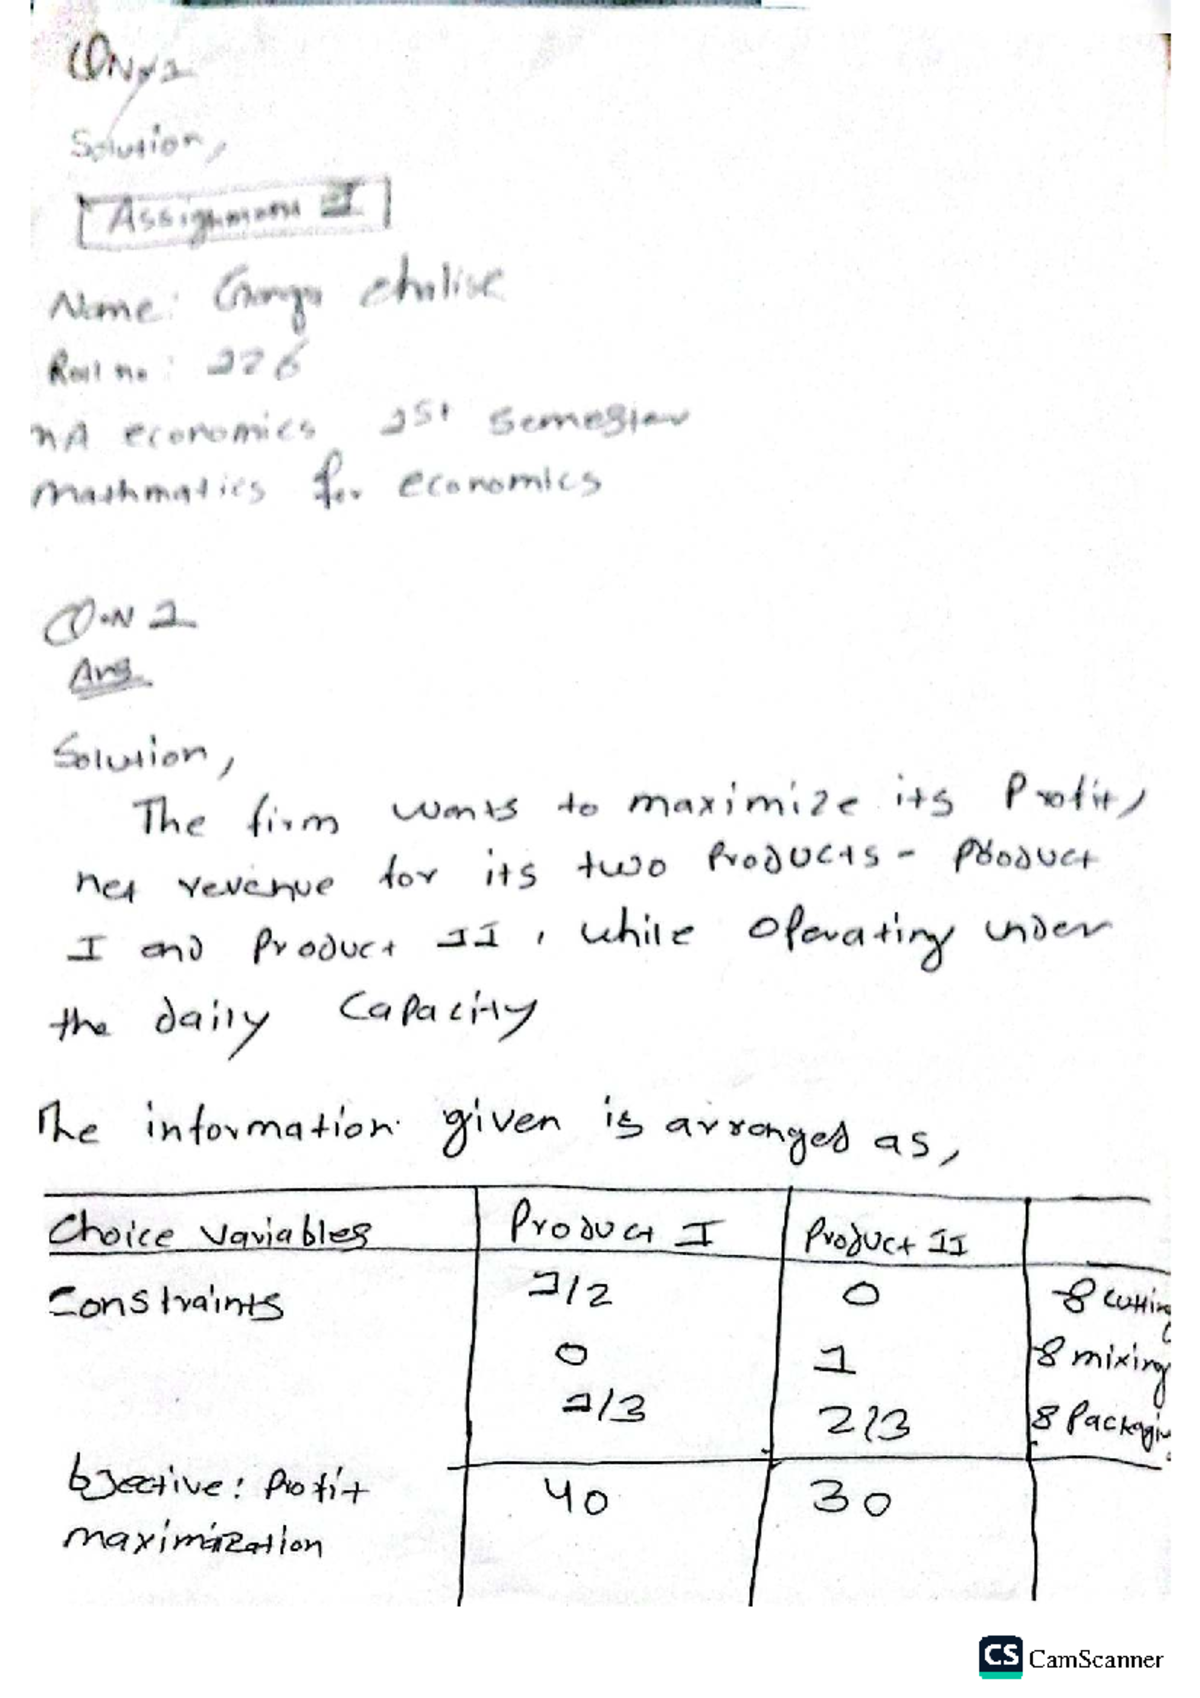 Q.N.1
Solution,
Assignment I
Name: Ganga Chalise
Roll no: 226
MA economics 1st Semester
Mathmatics for economics
Q.N 1
Ans
Solution,
The firm wants to maximize its Profit,
net revenue for its two Products - Product
I and Product II, while Operating under
the daily Capacity
The information given is arranged as,
Choice Variables Product I Product II
Constraints 1/2 0 8 Cutting
0 1 8 mixing
1/3 2/3 8 Packagin
bjective: Profit 40 30
maximization
CS CamScanner